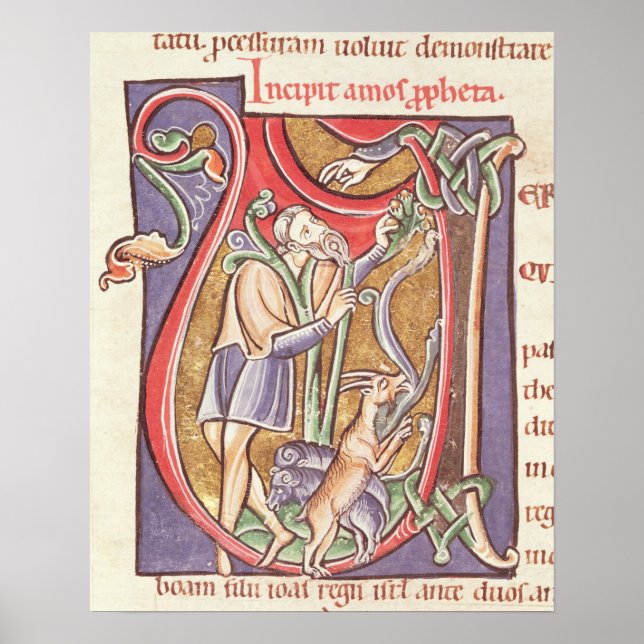 tatu. pcessuram uoluit demonstrare
Incipit amos ppheta.
ER
QVI
pas
the
du
in
reg
mo
boam filii ioas regis isrl ante duos an